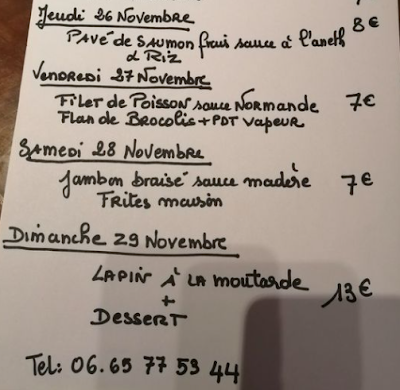 Jeudi 26 Novembre
Pavé de Saumon frais sauce à l'aneth 8€
& Riz
Vendredi 27 Novembre
Filet de Poisson sauce Normande 7€
Flan de Brocolis + PDT vapeur
Samedi 28 Novembre
Jambon braisé sauce madère 7€
Frites maison
Dimanche 29 Novembre
Lapin à la moutarde
+ 13€
Dessert
Tel: 06.65 77 53 44